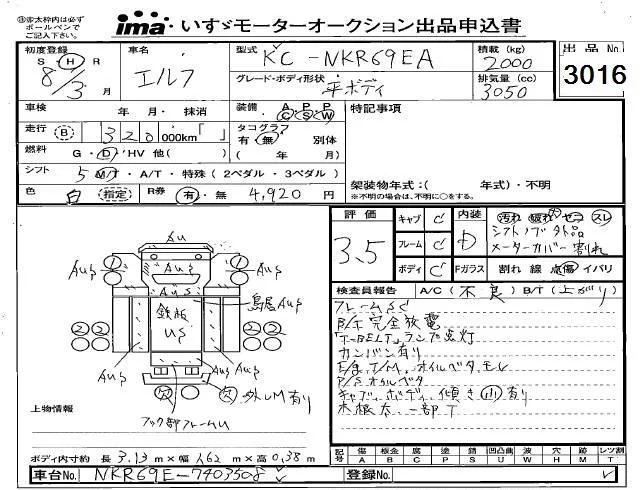 ㊟赤太枠内は必ず
ボールペンで
ご記入下さい。
ima いすゞモーターオークション出品申込書
初度登録 S H R 8/3 月
車名 エルフ
型式 KC-NKR69EA
グレード・ボディ形状 平ボディ
積載 (kg) 2000
排気量 (cc) 3050
出品 No
3016
車検 年・月・抹消
装備 A P P C S W
特記事項
走行 B 320,000km「 」
タコグラフ 有・無 別体
( 年 月)
燃料 G・D/HV 他( )
シフト 5 M/T・A/T・特殊 (2ペダル・3ペダル)
架装物年式:( 年式)・不明
※不明の場合は、不明に○をする。
色 白 (指定)
R券 有・無 4,920 円
評価 3.5
キャブ C
フレーム C
ボディ C
内装 D
汚れ 破れ コゲ スレ
シフトノブ外品
メーターカバー割れ
Fガラス 割れ 線 点傷 イバリ
検査員報告 A/C (不良) B/T (上がり)
フレームSC
B/T完全放電
「T-BELT」ランプ点灯
カンバン有り
E/g, T/M, オイルベタ, モレ
P/S オイルベタ
キャブ、ボディ、傾き小有り
木根太一部T
AU
AUS
AUS
AUS
AUS
AUS
鉄板
US
鳥居AUS
AUS
AUS
フック部フレームU
外しM有り
上物情報
ボディ内寸約 長 3.13 m×幅 1.62 m×高 0.38 m
記号 傷 A 板金 B 腐 C 塗 P 錆 S 凹凸曲 U 波 W 穴 H 跡 M レンズ割 T
車台No. NKR69E-7403508
登録No.